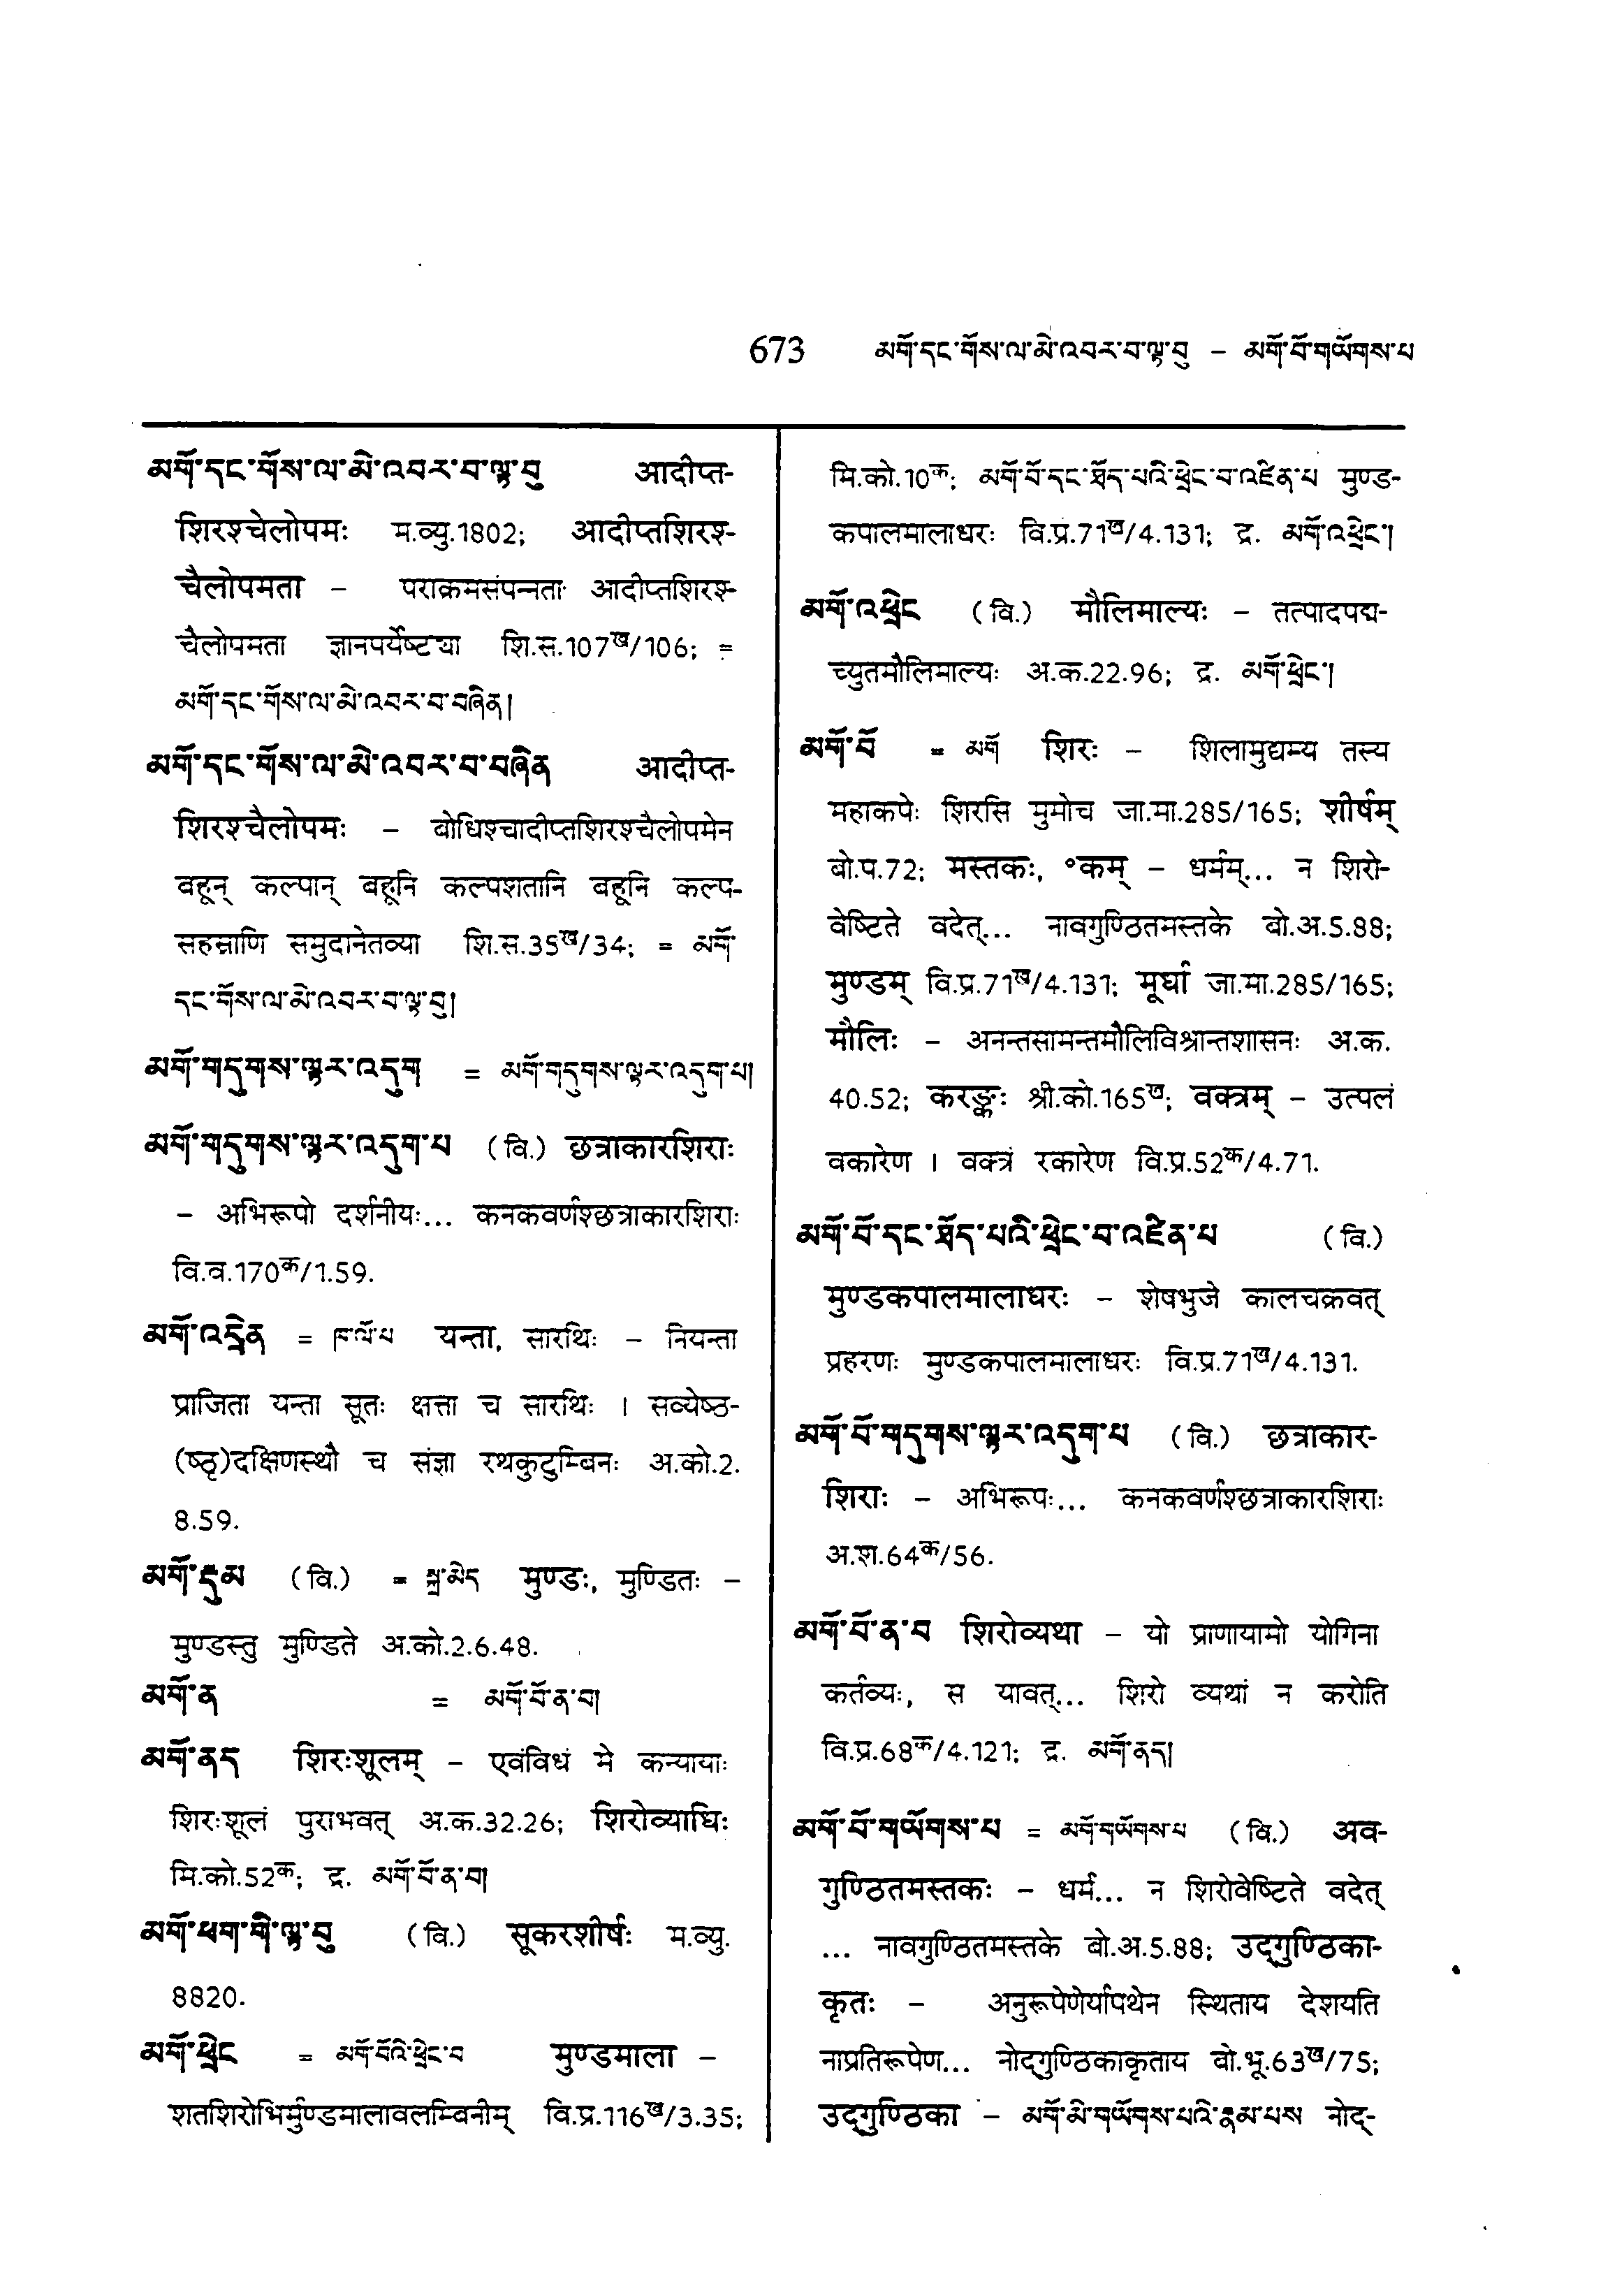 673 མགོ་དང་གོས་ལ་མེ་འབར་བ་ལྟ་བུ – མགོ་བོ་གཡོགས་པ
མགོ་དང་གོས་ལ་མེ་འབར་བ་ལྟ་བུ आदीप्त-
शिरश्चेलोपमः म.व्यु.1802; आदीप्तशिरश्-
चैलोपमता – पराक्रमसंपन्नता आदीप्तशिरश्-
चैलोपमता ज्ञानपर्येष्ट्या शि.स.107ख/106; =
མགོ་དང་གོས་ལ་མེ་འབར་བ་བཞིན།
མགོ་དང་གོས་ལ་མེ་འབར་བ་བཞིན आदीप्त-
शिरश्चैलोपमः – बोधिश्चादीप्तशिरश्चैलोपमेन
बहून् कल्पान् बहूनि कल्पशतानि बहूनि कल्प-
सहस्राणि समुदानेतव्या शि.स.35ख/34; = མགོ་
དང་གོས་ལ་མེ་འབར་བ་ལྟ་བུ།
མགོ་གདུགས་ལྟར་འདུག = མགོ་གདུགས་ལྟར་འདུག་པ།
མགོ་གདུགས་ལྟར་འདུག་པ (वि.) छत्राकारशिराः
– अभिरूपो दर्शनीयः... कनकवर्णश्छत्राकारशिराः
वि.व.170क/1.59.
མགོ་འདྲེན = ཁ་ལོ་པ यन्ता, सारथिः – नियन्ता
प्राजिता यन्ता सूतः क्षत्ता च सारथिः । सव्येष्ठ-
(ष्ठृ)दक्षिणस्थौ च संज्ञा रथकुटुम्बिनः अ.को.2.
8.59.
མགོ་དུམ (वि.) = སྐྲ་མེད मुण्डः, मुण्डितः –
मुण्डस्तु मुण्डिते अ.को.2.6.48.
མགོ་ན = མགོ་བོ་ན་བ།
མགོ་ནད शिरःशूलम् – एवंविधं मे कन्यायाः
शिरःशूलं पुराभवत् अ.क.32.26; शिरोव्याधिः
मि.को.52क; द्र. མགོ་བོ་ན་བ།
མགོ་ཕག་གི་ལྟ་བུ (वि.) सूकरशीर्षः म.व्यु.
8820.
མགོ་ཕྲེང = མགོ་བོའི་ཕྲེང་བ मुण्डमाला –
शतशिरोभिर्मुण्डमालावलम्बिनीम् वि.प्र.116ख/3.35;
मि.को.10क; མགོ་བོ་དང་ཐོད་པའི་ཕྲེང་བ་འཛིན་པ मुण्ड-
कपालमालाधरः वि.प्र.71ख/4.131; द्र. མགོ་འཕྲེང་།
མགོ་འཕྲེང (वि.) मौलिमाल्यः – तत्पादपद्म-
च्युतमौलिमाल्यः अ.क.22.96; द्र. མགོ་ཕྲེང་།
མགོ་བོ = མགོ शिरः – शिलामुद्यम्य तस्य
महाकपेः शिरसि मुमोच जा.मा.285/165; शीर्षम्
बो.प.72; मस्तकः, °कम् – धर्मम्... न शिरो-
वेष्टिते वदेत्... नावगुण्ठितमस्तके बो.अ.5.88;
मुण्डम् वि.प्र.71ख/4.131; मूर्धा जा.मा.285/165;
मौलिः – अनन्तसामन्तमौलिविश्रान्तशासनः अ.क.
40.52; करङ्कः श्री.को.165ख; वक्त्रम् – उत्पलं
वकारेण । वक्त्रं रकारेण वि.प्र.52क/4.71.
མགོ་བོ་དང་ཐོད་པའི་ཕྲེང་བ་འཛིན་པ (वि.)
मुण्डकपालमालाधरः – शेषभुजे कालचक्रवत्
प्रहरणः मुण्डकपालमालाधरः वि.प्र.71ख/4.131.
མགོ་བོ་གདུགས་ལྟར་འདུག་པ (वि.) छत्राकार-
शिराः – अभिरूपः... कनकवर्णश्छत्राकारशिराः
अ.श.64क/56.
མགོ་བོ་ན་བ शिरोव्यथा – यो प्राणायामो योगिना
कर्तव्यः, स यावत्... शिरो व्यथां न करोति
वि.प्र.68क/4.121; द्र. མགོ་ནད།
མགོ་བོ་གཡོགས་པ = མགོ་གཡོགས་པ (वि.) अव-
गुण्ठितमस्तकः – धर्म... न शिरोवेष्टिते वदेत्
... नावगुण्ठितमस्तके बो.अ.5.88; उद्गुण्ठिका-
कृतः – अनुरूपेणेर्यापथेन स्थिताय देशयति
नाप्रतिरूपेण... नोद्गुण्ठिकाकृताय बो.भू.63ख/75;
उद्गुण्ठिका – མགོ་མི་གཡོགས་པའི་རྣམ་པས नोद्-